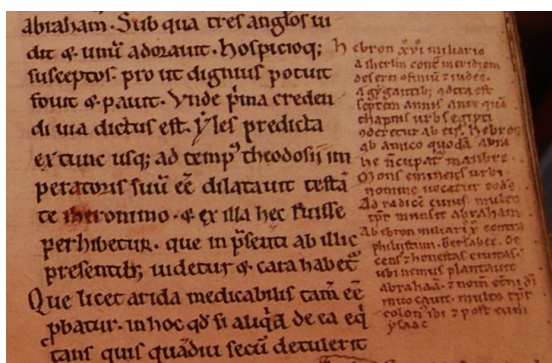 abraham. Sub qua tres anglos ui
dit & unū adorauit. hospicioq;
susceptos. pro ut dignius potuit
fouit & pauit. Vnde p̄ina creden
di uia dictus est. Yles predicta
ex tunc usq; ad temp' theodosii im
peratoris suū eē dilatauit testā
te iheronimo. & ex illa hec fuisse
perhibetur. que in p̄senti ab illic
presentib; uidetur & cara habet̄
Que licet arida medicabilis tam̄ eē
pbatur. in hoc qd si aliq̄d de ea eq̄
tans quis quādiu secū detulerit
hebron xvi miliario
a iherlm cont̄ meridiem
a gygantib;
septem annis ante quā
thapnis urbs egypti
ab eis. hebron
ab amico quodā abra
he n̄cupat̄ manbre.
Mons eminens urbi
nomine uocatur eodē
Ad radicē cuius multo
tp̄r mansit abraham
Ab ebron miliarix contra
philistim. Bersabee. de
cens & honesta ciuitas.
ubi nemus plantauit
abrahā. & nom̄ dn̄i di
inuocauit. multo tp̄r
colon' ibi & post eum
ysaac